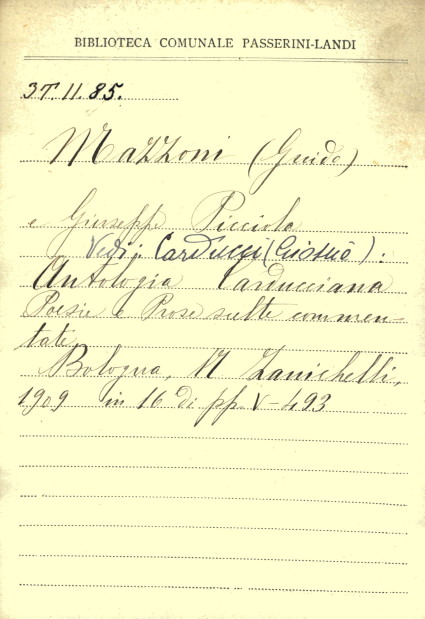 BIBLIOTECA COMUNALE PASSERINI-LANDI
3T. II. 85.
Mazzoni (Guido)
e Giuseppe Picciola
Vedi: Carducci (Giosuè):
Antologia Carducciana
Poesie e Prose scelte commen-
tate
Bologna, N Zanichelli,
1909 in 16 di pp. V-493